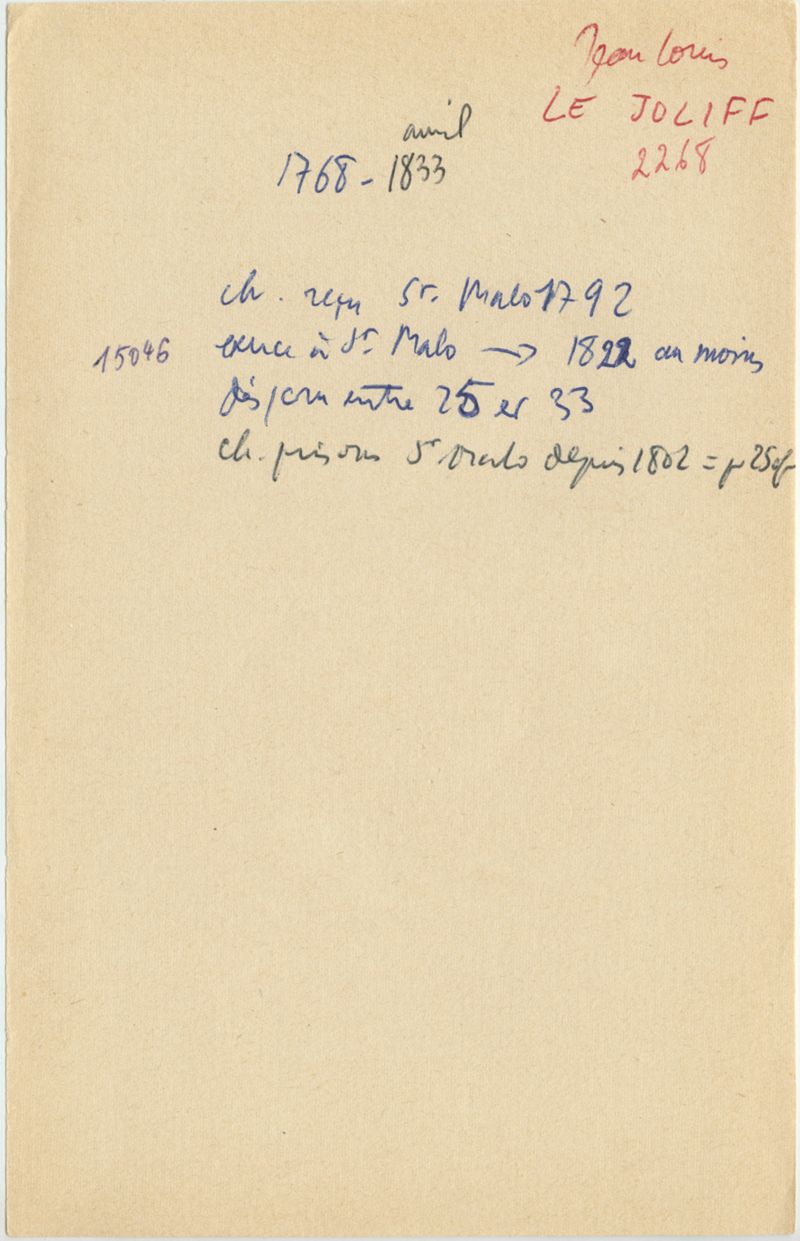 Jean Louis
LE JOLIFF
2268
avril
1768 - 1833
ch. reçu St. Malo 1792
15046 exerce à St Malo → 1822 au moins
entre 25 et 33
ch. prisons St Malo depuis 1802 =